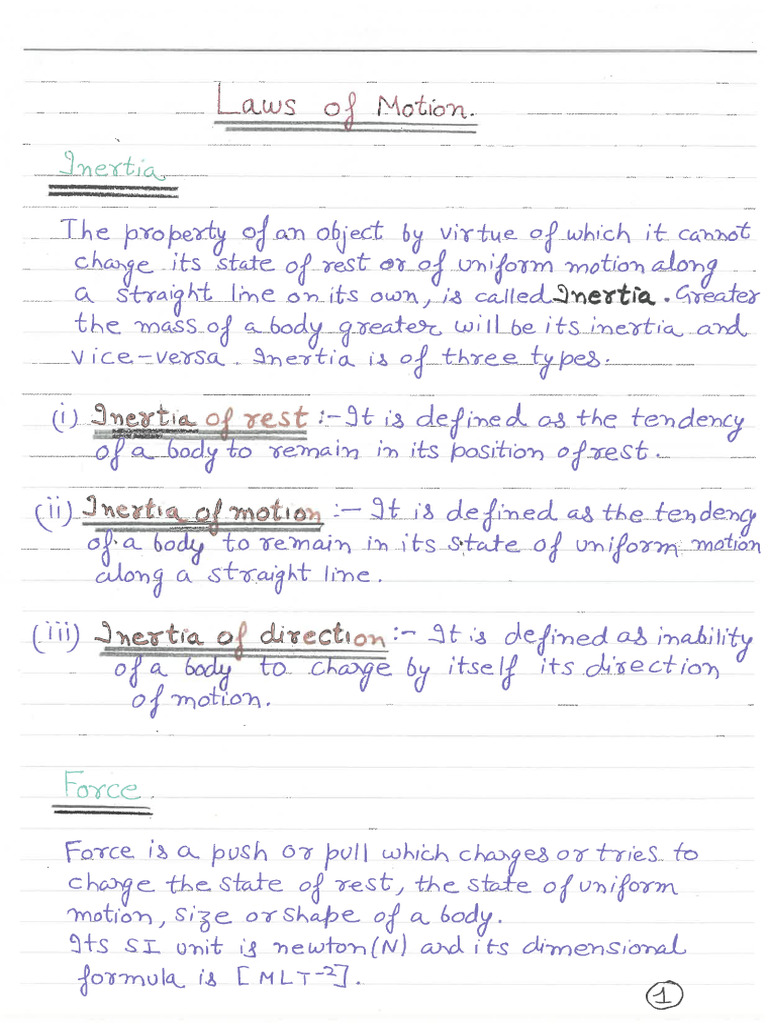 Laws of Motion.
Inertia
The property of an object by virtue of which it cannot
change its state of rest or of uniform motion along
a straight line on its own, is called Inertia. Greater
the mass of a body greater will be its inertia and
vice-versa. Inertia is of three types.
(i) Inertia of rest :- It is defined as the tendency
of a body to remain in its position of rest.
(ii) Inertia of motion :- It is defined as the tendency
of a body to remain in its state of uniform motion
along a straight line.
(iii) Inertia of direction :- It is defined as inability
of a body to change by itself its direction
of motion.
Force.
Force is a push or pull which changes or tries to
change the state of rest, the state of uniform
motion, size or shape of a body.
Its SI unit is newton(N) and its dimensional
formula is [MLT⁻²].
1